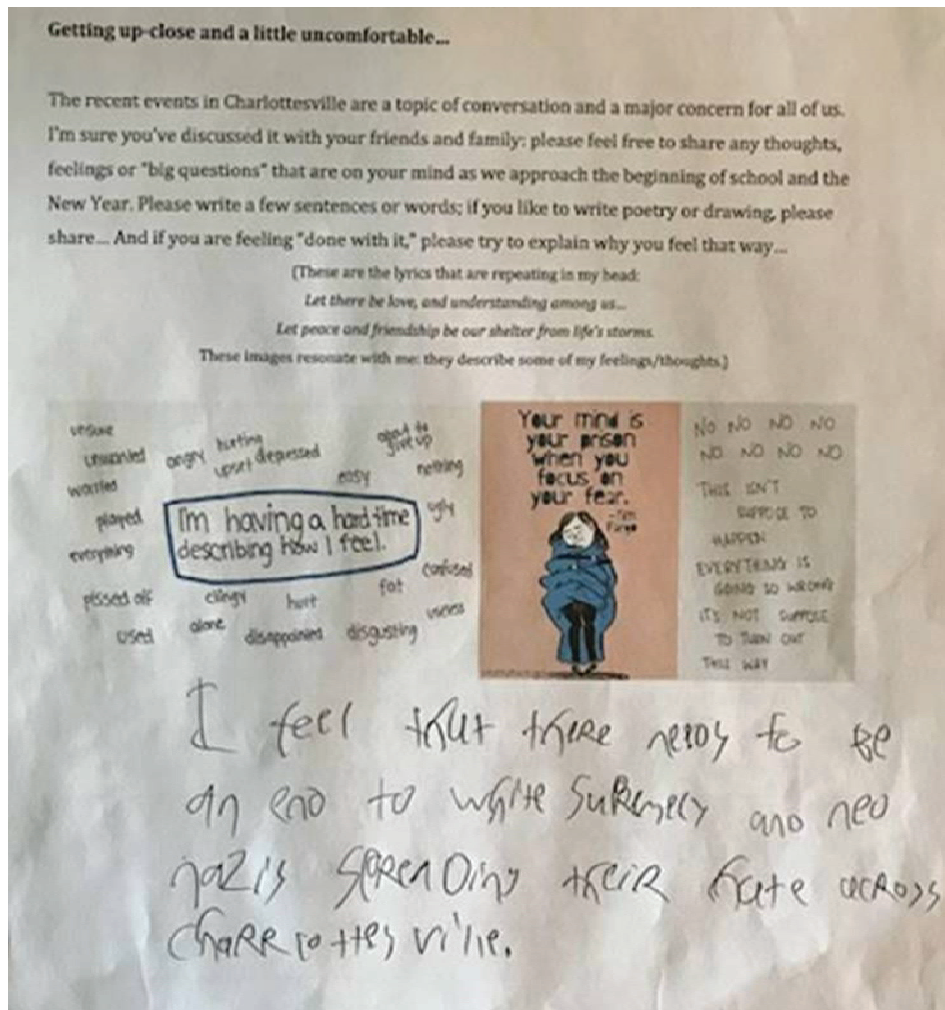 Getting up-close and a little uncomfortable...
The recent events in Charlottesville are a topic of conversation and a major concern for all of us.
I'm sure you've discussed it with your friends and family: please feel free to share any thoughts,
feelings or "big questions" that are on your mind as we approach the beginning of school and the
New Year. Please write a few sentences or words; if you like to write poetry or drawing, please
share... And if you are feeling "done with it," please try to explain why you feel that way...
(These are the lyrics that are repeating in my head:
Let there be love, and understanding among us...
Let peace and friendship be our shelter from life's storms.
These images resonate with me: they describe some of my feelings/thoughts.)
unsure
unwanted
angry
hurting
upset
depressed
give up
worried
easy
nothing
played
ugly
everything
I'm having a hard time
describing how I feel.
confused
pissed off
clingy
hurt
fat
useless
used
alone
disappointed
disgusting
Your mind is
your prison
when you
focus on
your fear.
NO NO NO NO
NO NO NO NO
THIS ISN'T
SUPPOSE TO
HAPPEN
EVERYTHING IS
GOING SO WRONG
IT'S NOT SUPPOSE
TO TURN OUT
THIS WAY
I feel that there needs to be
an end to white Supremecy and neo
nazis spreading their hate across
Charrlottesville.